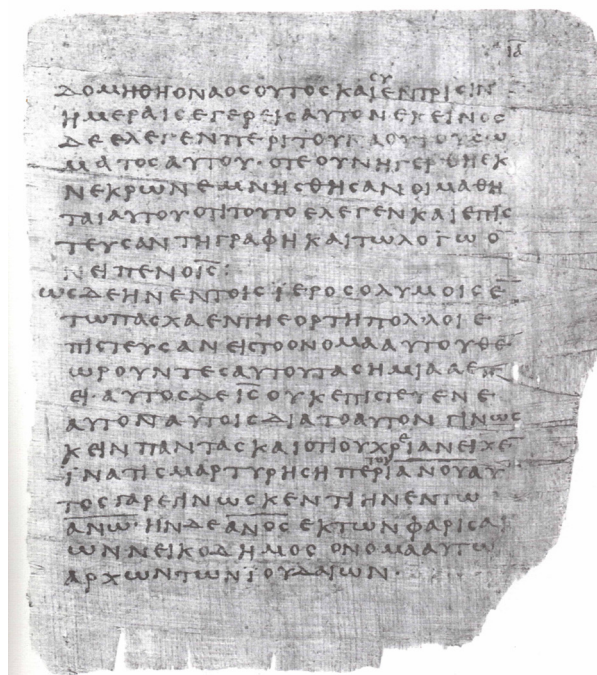 ΙΔ
ΔΟΜΗΘΗΟΝΑΟϹΟΥΤΟϹΚΑΙϹΥΕΝΤΡΙϹΙΝ
ΗΜΕΡΑΙϹΕΓΕΡΕΙϹΑΥΤΟΝΕΚΕΙΝΟϹ
ΔΕΕΛΕΓΕΝΠΕΡΙΤΟΥΝΑΟΥΤΟΥϹΩ
ΜΑΤΟϹΑΥΤΟΥ·ΟΤΕΟΥΝΗΓΕΡΘΗΕΚ
ΝΕΚΡΩΝΕΜΝΗϹΘΗϹΑΝΟΙΜΑΘΗ
ΤΑΙΑΥΤΟΥΟΤΙΤΟΥΤΟΕΛΕΓΕΝΚΑΙΕΠΙϹ
ΤΕΥϹΑΝΤΗΓΡΑΦΗΚΑΙΤΩΛΟΓΩΟ
ΝΕΙΠΕΝΟΙ̅Ϲ̅:
ΩϹΔΕΗΝΕΝΤΟΙϹΙΕΡΟϹΟΛΥΜΟΙϹΕ̅
ΤΩΠΑϹΧΑΕΝΤΗΕΟΡΤΗΠΟΛΛΟΙΕ
ΠΙϹΤΕΥϹΑΝΕΙϹΤΟΟΝΟΜΑΑΥΤΟΥΘΕ
ΩΡΟΥΝΤΕϹΑΥΤΟΥΤΑϹΗΜΙΑΑΕΠ
ΕΙ·ΑΥΤΟϹΔΕΙ̅Ϲ̅ΟΥΚΕΠΙϹΤΕΥΕΝΕ
ΑΥΤΟΝΑΥΤΟΙϹΔΙΑΤΟΑΥΤΟΝΓΙΝΩϹ
ΚΕΙΝΠΑΝΤΑϹΚΑΙΟΤΙΟΥΧΡΕΙΑΝΕΙΧΕ̅
ΙΝΑΤΙϹΜΑΡΤΥΡΗϹΗΠΕΡΙΤΟΥΑ̅Ν̅Ο̅Υ̅ΑΥ
ΤΟϹΓΑΡΕΓΙΝΩϹΚΕΝΤΙΗΝΕΝΤΩ
Α̅Ν̅Ω̅·ΗΝΔΕΑ̅Ν̅Ο̅Ϲ̅ΕΚΤΩΝΦΑΡΙϹΑΙ
ΩΝΝΕΙΚΟΔΗΜΟϹΟΝΟΜΑΑΥΤΩ
ΑΡΧΩΝΤΩΝΙΟΥΔΑΙΩΝ·